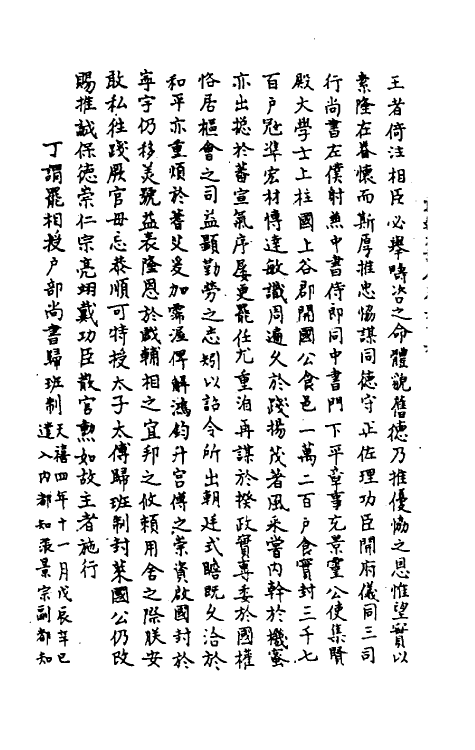 王者倚注相臣必舉疇咨之命體貌舊德乃推優恤之恩惟望實以
素隆在眷懷而斯厚推忠協謀同德守正佐理功臣開府儀同三司
行尚書左僕射兼中書侍郎同中書門下平章事充景靈公使集賢
殿大學士上柱國上谷郡開國公食邑一萬二百户食實封三千七
百户寇準宏材博達敏識周通久於踐揚茂著風采嘗内幹於機蜜
亦出摠於蕃宣氣序屡更罷任尤重洎再謀於揆政實專委於國權
恪居樞會之司益顯勤勞之志矧以詔令所出朝廷式瞻既久洽於
和平亦重煩於耆艾爰加霈渥俾解鴻鈞升宫傅之崇資啟國封於
寧宇仍移美號益表隆恩於戲輔相之宜邦之攸賴用舍之際朕安
敢私往踐厥官毋忘恭順可特授太子太傅歸班制封莱國公仍改
賜推誠保德崇仁宗亮翊戴功臣散官勲如故主者施行
丁謂罷相授户部尚書歸班制天禧四年十一月戊辰年已
遣入内都知張景宗副都知